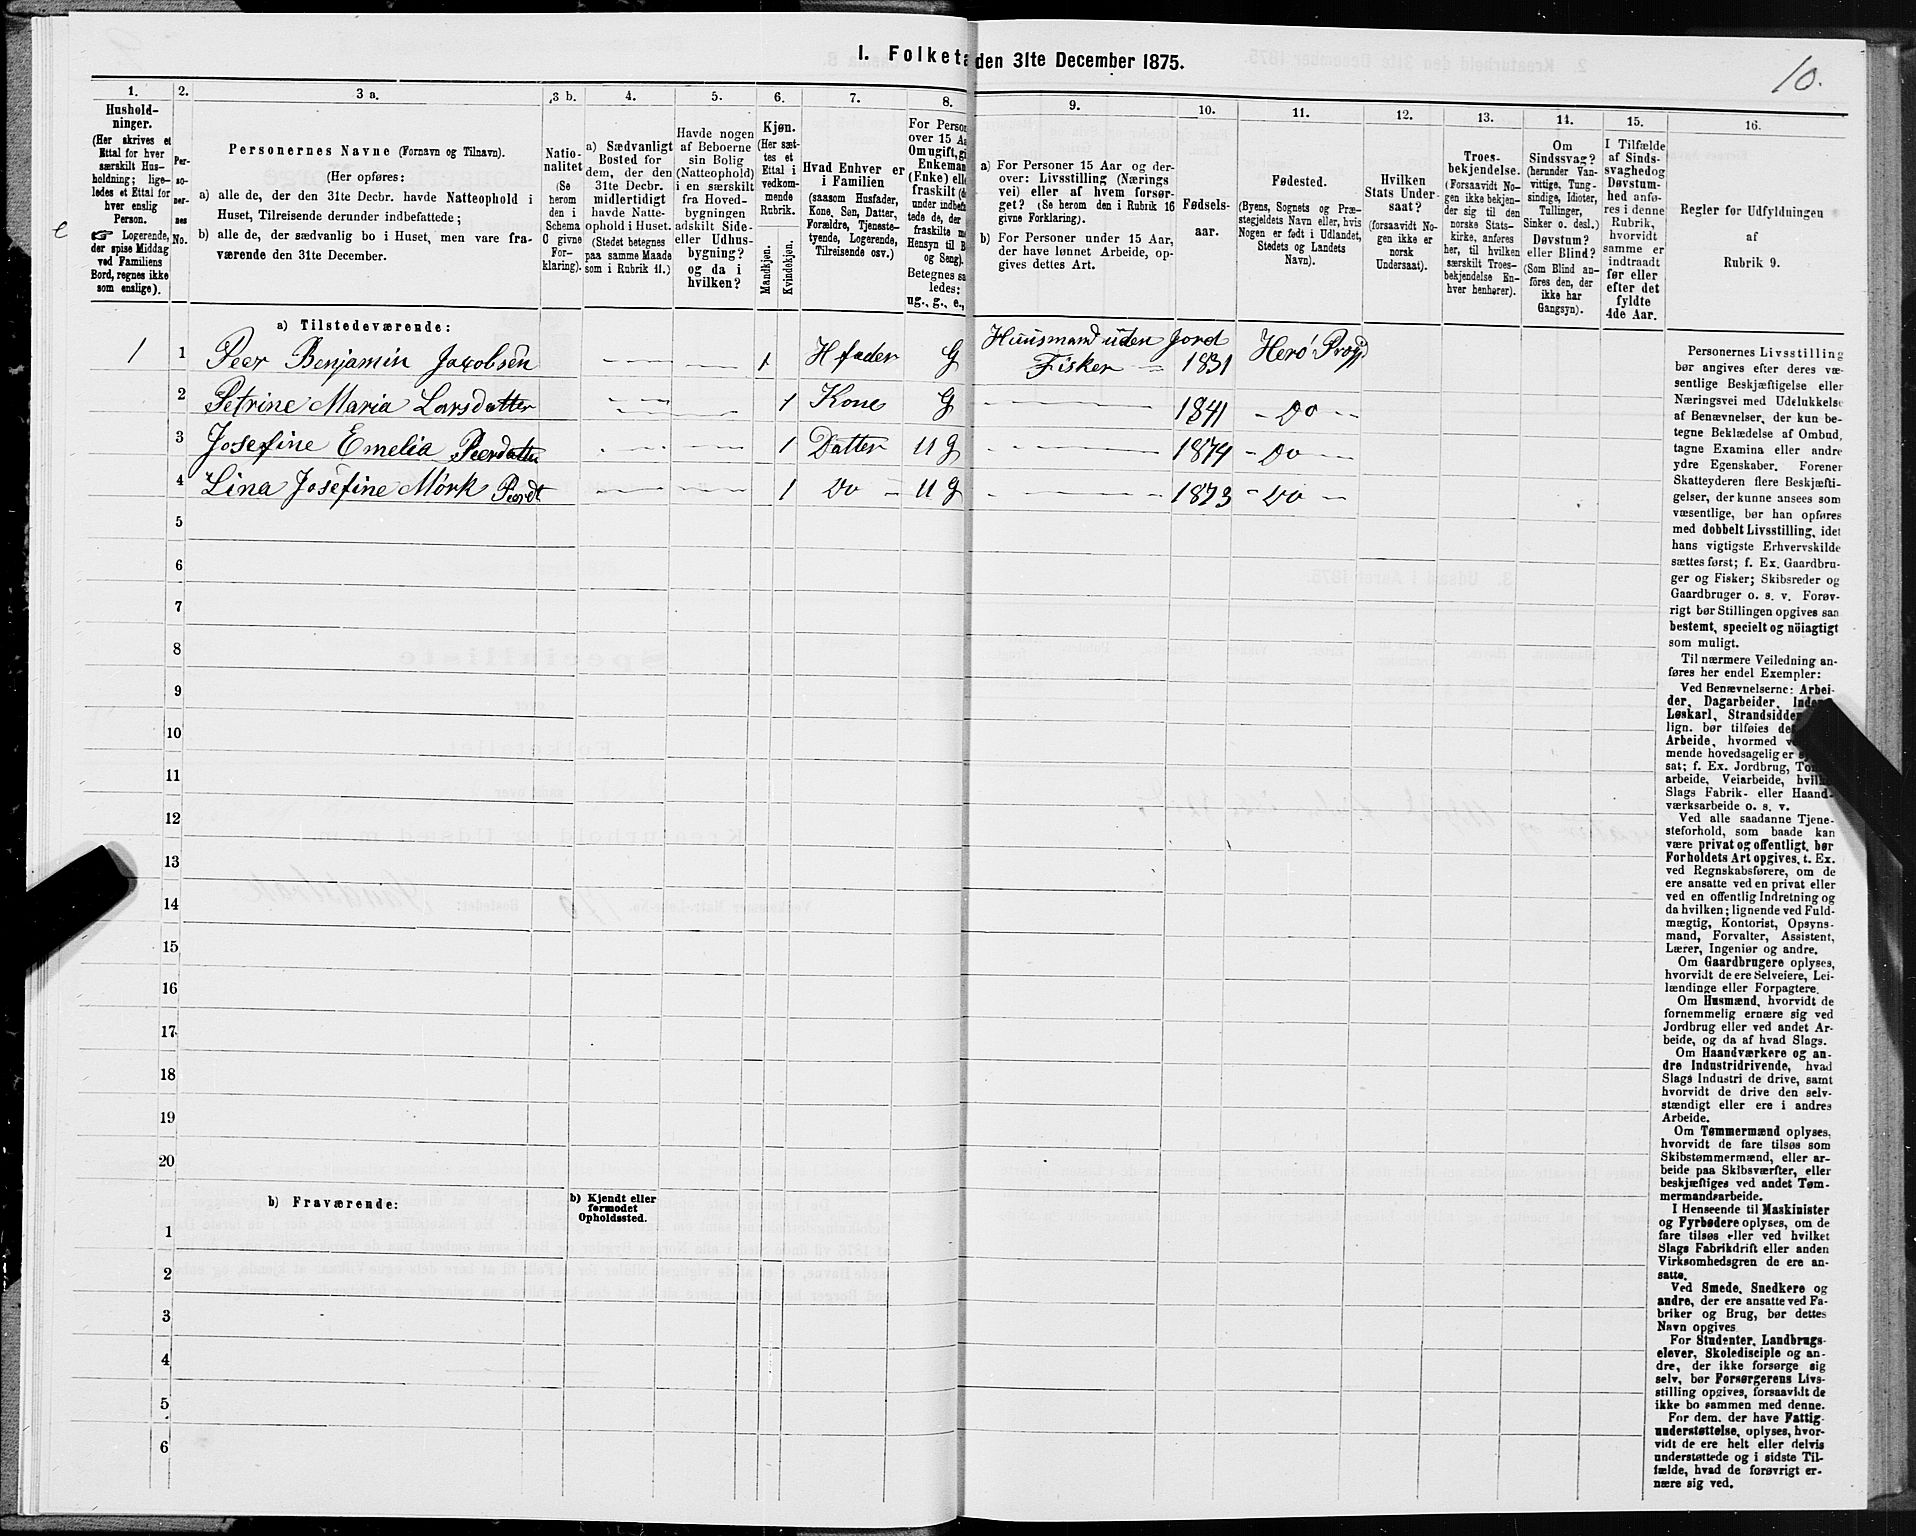 I. Folketa den 31te December 1875.
10.
1.
2.
3 a.
3 b.
4.
5.
6.
7.
8.
9.
10.
11.
12.
13.
14.
15.
16.
Hushold-
ninger.
(Her skrives et
Ettal for hver
særskilt Hus-
holdning; lige-
ledes et Ettal for
hver enslig
Person.
☞ Logerende,
der spise Middag
ved Familiens
Bord, regnes ikke
som enslige).
Per-
so-
ner-
nes
No.
Personernes Navne (Fornavn og Tilnavn).
(Her opføres:
a) alle de, der den 31te Decbr. havde Natteophold i
Huset, Tilreisende derunder indbefattede;
b) alle de, der sædvanlig bo i Huset, men vare fra-
værende den 31te December.
Natio-
nalitet
(Se
herom
den i
Schema
C givne
For-
klaring).
a) Sædvanligt
Bosted for
dem, der den
31te Decbr.
midlertidigt
havde Natte-
ophold i Huset.
(Stedet betegnes
paa samme Maade
som i Rubrik 11.)
Havde nogen
af Beboerne
sin Bolig
(Natteophold)
i en særskilt
fra Hoved-
bygningen
adskilt Side-
eller Udhus-
bygning?
og da i
hvilken?
Kjøn.
(Her sæt-
tes et
Ettal i
vedkom-
mende
Rubrik.
Mandkjøn.
Kvindekjøn.
Hvad Enhver er
i Familien
(saasom Husfader,
Kone, Søn, Datter,
Forældre, Tjeneste-
tyende, Logerende,
Tilreisende osv.)
For Person
over 15 Aa
Om ugift, gi
Enkeman
(Enke) elle
fraskilt (d
under indbefat
tede de, der
fraskilte m
Hensyn til B
og Seng).
Betegnes sa
ledes:
ug., g., e.,
a) For Personer 15 Aar og der-
over: Livsstilling (Nærings
vei) eller af hvem forsør-
get? (Se herom den i Rubrik 16
givne Forklaring).
b) For Personer under 15 Aar,
der have lønnet Arbeide, op-
gives dettes Art.
Fødsels-
aar.
Fødested.
(Byens, Sognets og Præ-
stegjeldets Navn eller, hvis
Nogen er født i Udlandet,
Stedets og Landets
Navn).
Hvilken
Stats Under-
saat?
(forsaavidt No-
gen ikke er
norsk
Undersaat).
Troes-
bekjendelse.
(Forsaavidt No-
gen ikke bekjen-
der sig til den
norske Stats-
kirke, anføres
her, til hvilken
særskilt Troes-
bekjendelse En-
hver henhører).
Om
Sindssvag?
(herunder Van-
vittige, Tung-
sindige, Idioter,
Tullinger,
Sinker o. desl.)
Døvstum?
eller Blind?
(Som Blind an-
føres den, der
ikke har
Gangsyn).
I Tilfælde
af Sinds-
svaghedog
Døvstum-
hed anfø-
res i denne
Rubrik,
hvorvidt
samme er
indtraadt
før eller
efter det
fyldte
4de Aar.
Regler for Udfyldningen
af
Rubrik 9.
a) Tilstedeværende:
1 1 Peer Benjamin Jacobsen 1 Hfader G Huusmand uden Jord
Fisker 1831 Herø Prgj
2 Petrine Maria Larsdatter 1 Kone G 1841 - Do -
3 Josefine Emelia Peerdatter 1 Datter U G 1874 - Do -
4 Lina Josefine Mörk Peerdt 1 Do - U G 1873 - Do -
5
6
7
8
9
10
11
12
13
14
15
16
17
18
19
20
b) Fraværende:
b) Kjendt eller
formodet
Opholdssted.
1
2
3
4
5
6
Personernes Livsstilling
bør angives efter deres væ-
sentlige Beskjæftigelse eller
Næringsvei med Udelukkelse
af Benævnelser, der kun be-
tegne Beklædelse af Ombud,
tagne Examina eller andre
ydre Egenskaber. Forener
Skatteyderen flere Beskjæfti-
gelser, der kunne ansees som
væsentlige, bør han opføres
med dobbelt Livsstilling, idet
hans vigtigste Erhvervskilde
sættes først; f. Ex. Gaardbru-
ger og Fisker; Skibsreder og
Gaardbruger o. s. v. Forøv-
rigt bør Stillingen opgives saa
bestemt, specielt og nöiagtigt
som muligt.
Til nærmere Veiledning an-
føres her endel Exempler:
Ved Benævnelserne: Arbei-
der, Dagarbeider,
Løskarl, Strandsidder
lign. bør tilføies
Arbeide, hvormed
mende hovedsagelig er
sat; f. Ex. Jordbrug,
arbeide, Veiarbeide,
Slags Fabrik- eller Haand-
værksarbeide o. s. v.
Ved alle saadanne Tjene-
steforhold, som baade kan
være privat og offentligt, bør
Forholdets Art opgives, t. Ex.
ved Regnskabsførere, om de
ere ansatte ved en privat eller
ved en offentlig Indretning og
da hvilken; lignende ved Fuld-
mægtig, Kontorist, Opsyns-
mand, Forvalter, Assistent,
Lærer, Ingeniør og andre.
Om Gaardbrugere oplyses,
hvorvidt de ere Selveiere, Lei-
lændinge eller Forpagtere.
Om Husmænd, hvorvidt de
fornemmelig ernære sig ved
Jordbrug eller ved andet Ar-
beide, og da af hvad Slags.
Om Haandværkere og an-
dre Industridrivende, hvad
Slags Industri de drive, samt
hvorvidt de drive den selv-
stændigt eller ere i andres
Arbeide.
Om Tømmermænd oplyses,
hvorvidt de fare tilsøs som
Skibstømmermænd, eller ar-
beide paa Skibsværfter, eller
beskjæftiges ved andet Tøm-
mermandsarbeide.
I Henseende til Maskinister
og Fyrbødere oplyses, om de
fare tilsøs eller ved hvilket
Slags Fabrikdrift eller anden
Virksomhedsgren de ere an-
satte.
Ved Smede, Snedkere og
andre, der ere ansatte ved Fa-
briker og Brug, bør dettes
Navn opgives
For Studenter, Landbrugs-
elever, Skoledisciple og an-
dre, der ikke forsørge sig
selv, bør Forsørgerens Livs-
stilling opgives, forsaavidt de
ikke bo sammen med denne.
For dem, der have Fattig-
understøttelse, oplyses, hvor-
vidt de ere helt eller delvis
understøttede og i sidste Til-
fælde, hvad de forøvrigt er-
nære sig ved.